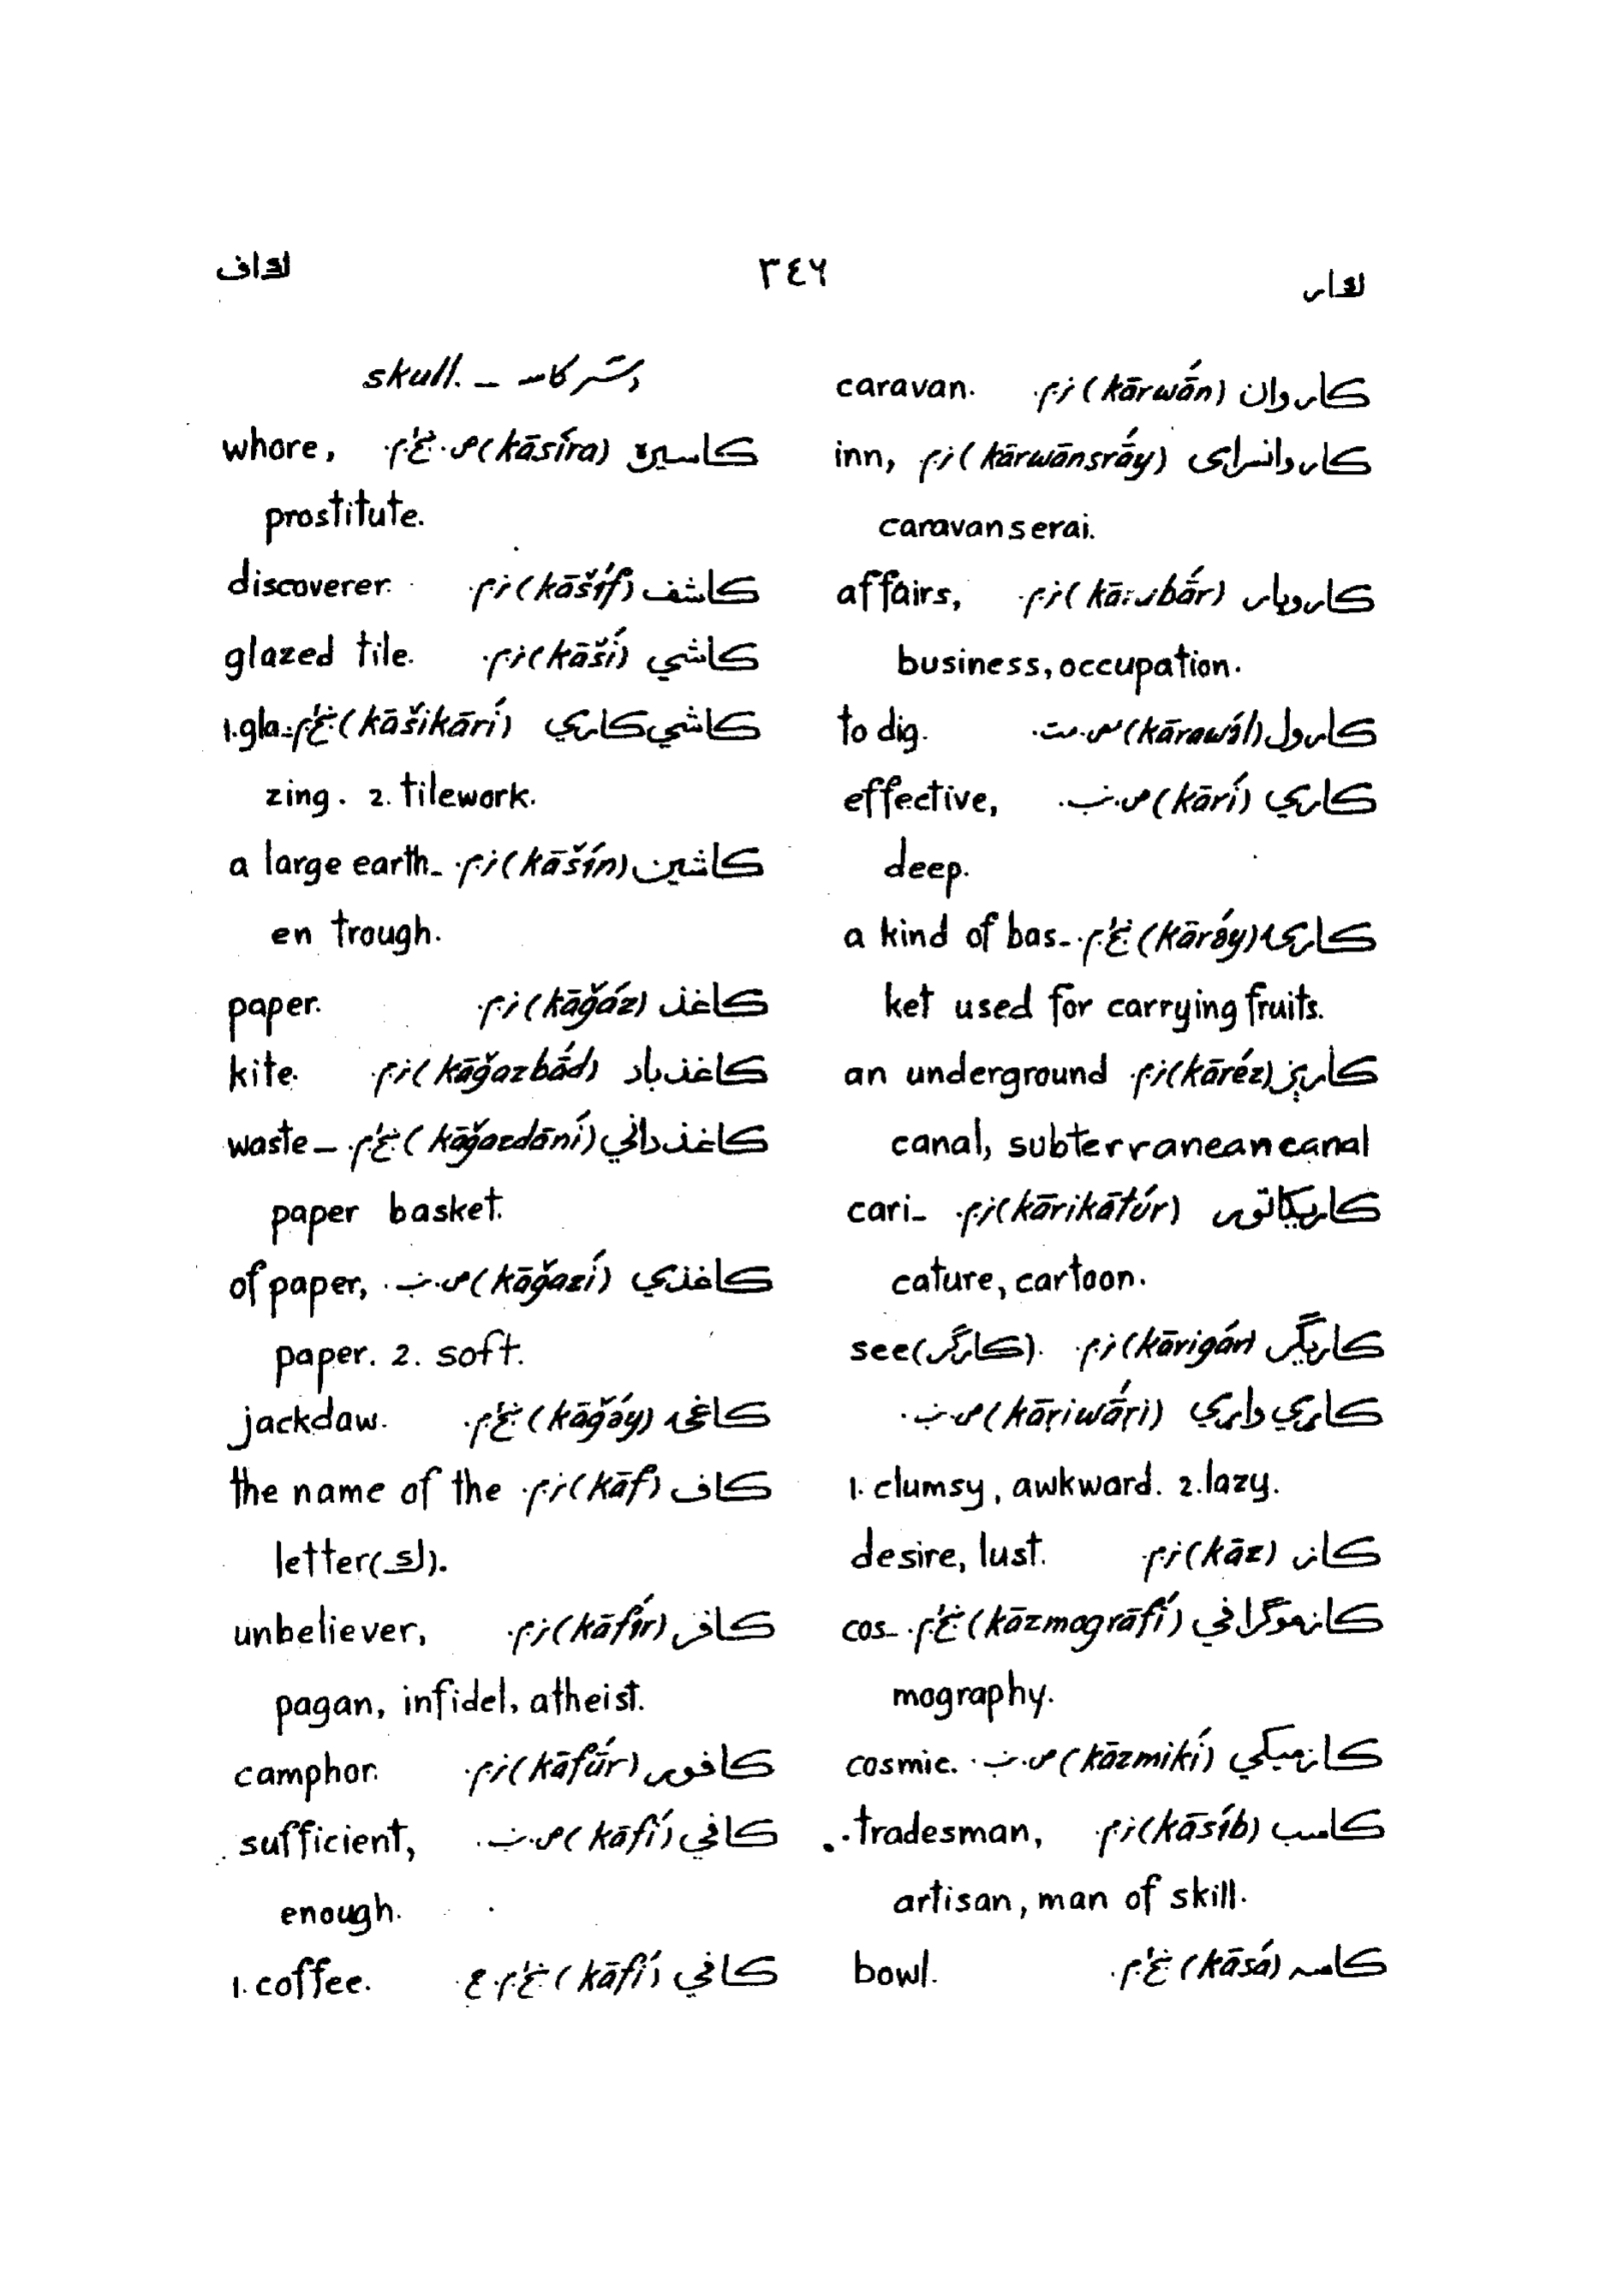 کار
٣٤٦
کاف
کاروان (kārwā́n) ن.م. caravan.
کاروانسرای (kārwānsrā́y) ن.م. inn,
caravanserai.
کاروبار (kārubā́r) ن.م. affairs,
business, occupation.
کارول (kārawə́l) to dig.
کاري (kārí) ص.ب. effective,
deep.
کارۍ (kārə́y) a kind of bas-
ket used for carrying fruits.
کارېز (kāréz) ن.م. an underground
canal, subterranean canal
کاریکاتور (kārikātúr) ن.م. cari-
cature, cartoon.
کاریگر (kārigár) ن.م. see (کارګر).
کاړي واړي (kāṛiwā́ṛi) ص.ب.
1. clumsy, awkward. 2. lazy.
کاز (kāz) ن.م. desire, lust.
کازموګرافي (kāzmogrāfí) cos-
mography.
کازمیکي (kāzmikí) ص.ب. cosmic.
کاسب (kāsíb) ن.م. tradesman,
artisan, man of skill.
کاسه (kāsá) bowl.
دسر کاسه - skull.
کاسیره (kāsíra) whore,
prostitute.
کاشف (kāšíf) ن.م. discoverer.
کاشي (kāší) ن.م. glazed tile.
کاشي کاري (kāšikārí) 1. gla-
zing. 2. tilework.
کاشین (kāšín) ن.م. a large earth-
en trough.
کاغذ (kāğáz) ن.م. paper.
کاغذباد (kāğazbā́d) ن.م. kite.
کاغذداني (kāğazdāní) waste-
paper basket.
کاغذي (kāğazí) ص.ب. of paper,
paper. 2. soft.
کاغۍ (kāğə́y) jackdaw.
کاف (kāf) ن.م. the name of the
letter (ک).
کافر (kāfír) ن.م. unbeliever,
pagan, infidel, atheist.
کافور (kāfúr) ن.م. camphor.
کافي (kāfí) ص.ب. sufficient,
enough.
کافي (kāfí) 1. coffee.